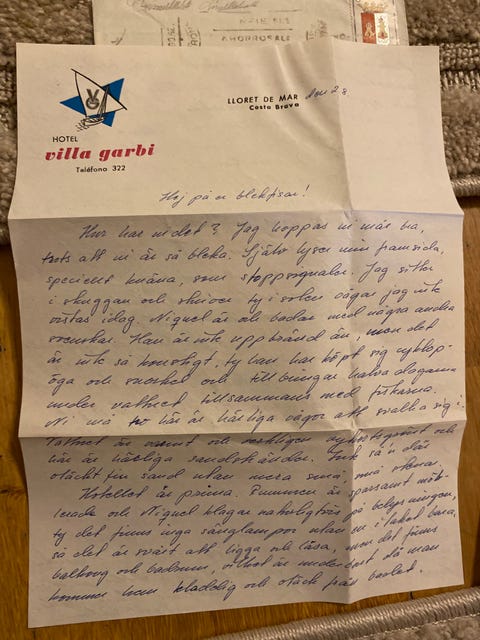 AHORROS AL E
HOTEL
villa garbi
Teléfono 322
LLORET DE MAR den 28.
Costa Brava
Hej på er blekfisar!
Hur har ni det? Jag hoppas ni mår bra,
trots att ni är så bleka. Själv lyser min framsida,
speciellt knäna, som stoppsignaler. Jag sitter
i skuggan och skriver ty i solen vågar jag inte
vistas idag. Niquel är och badar med några andra
svenskar. Han är inte uppbränd än, men det
är inte så konstigt, ty han har köpt sig cyklop-
öga och snorkel och tillbringar halva dagarna
under vattnet tillsammans med fiskarna.
Ni må tro här är härliga vågor att svalka sig i.
Vattnet är varmt och verkligen och
här är härliga sandstränder. Fast så'n där
otäckt fin sand utan mera små, små stenar.
Hotellet är prima. Rummen är sparsamt möb-
lerade och Niquel klagar naturligtvis på belysningen,
ty det finns inga sänglampor utan en i taket bara,
så det är svårt att ligga och läsa, men det finns
balkong och badrum, vilket är underbart då man
kommer hem kladdig och otäck från badet.